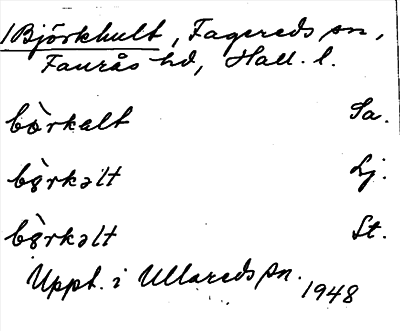 1 Björkhult, Fagereds sn,
Faurås hd, Hall. l.
bö̀rkalt Sa.
bö̀rkəlt Lj.
bö̀rkəlt St.
Uppt. i Ullareds sn.
1948